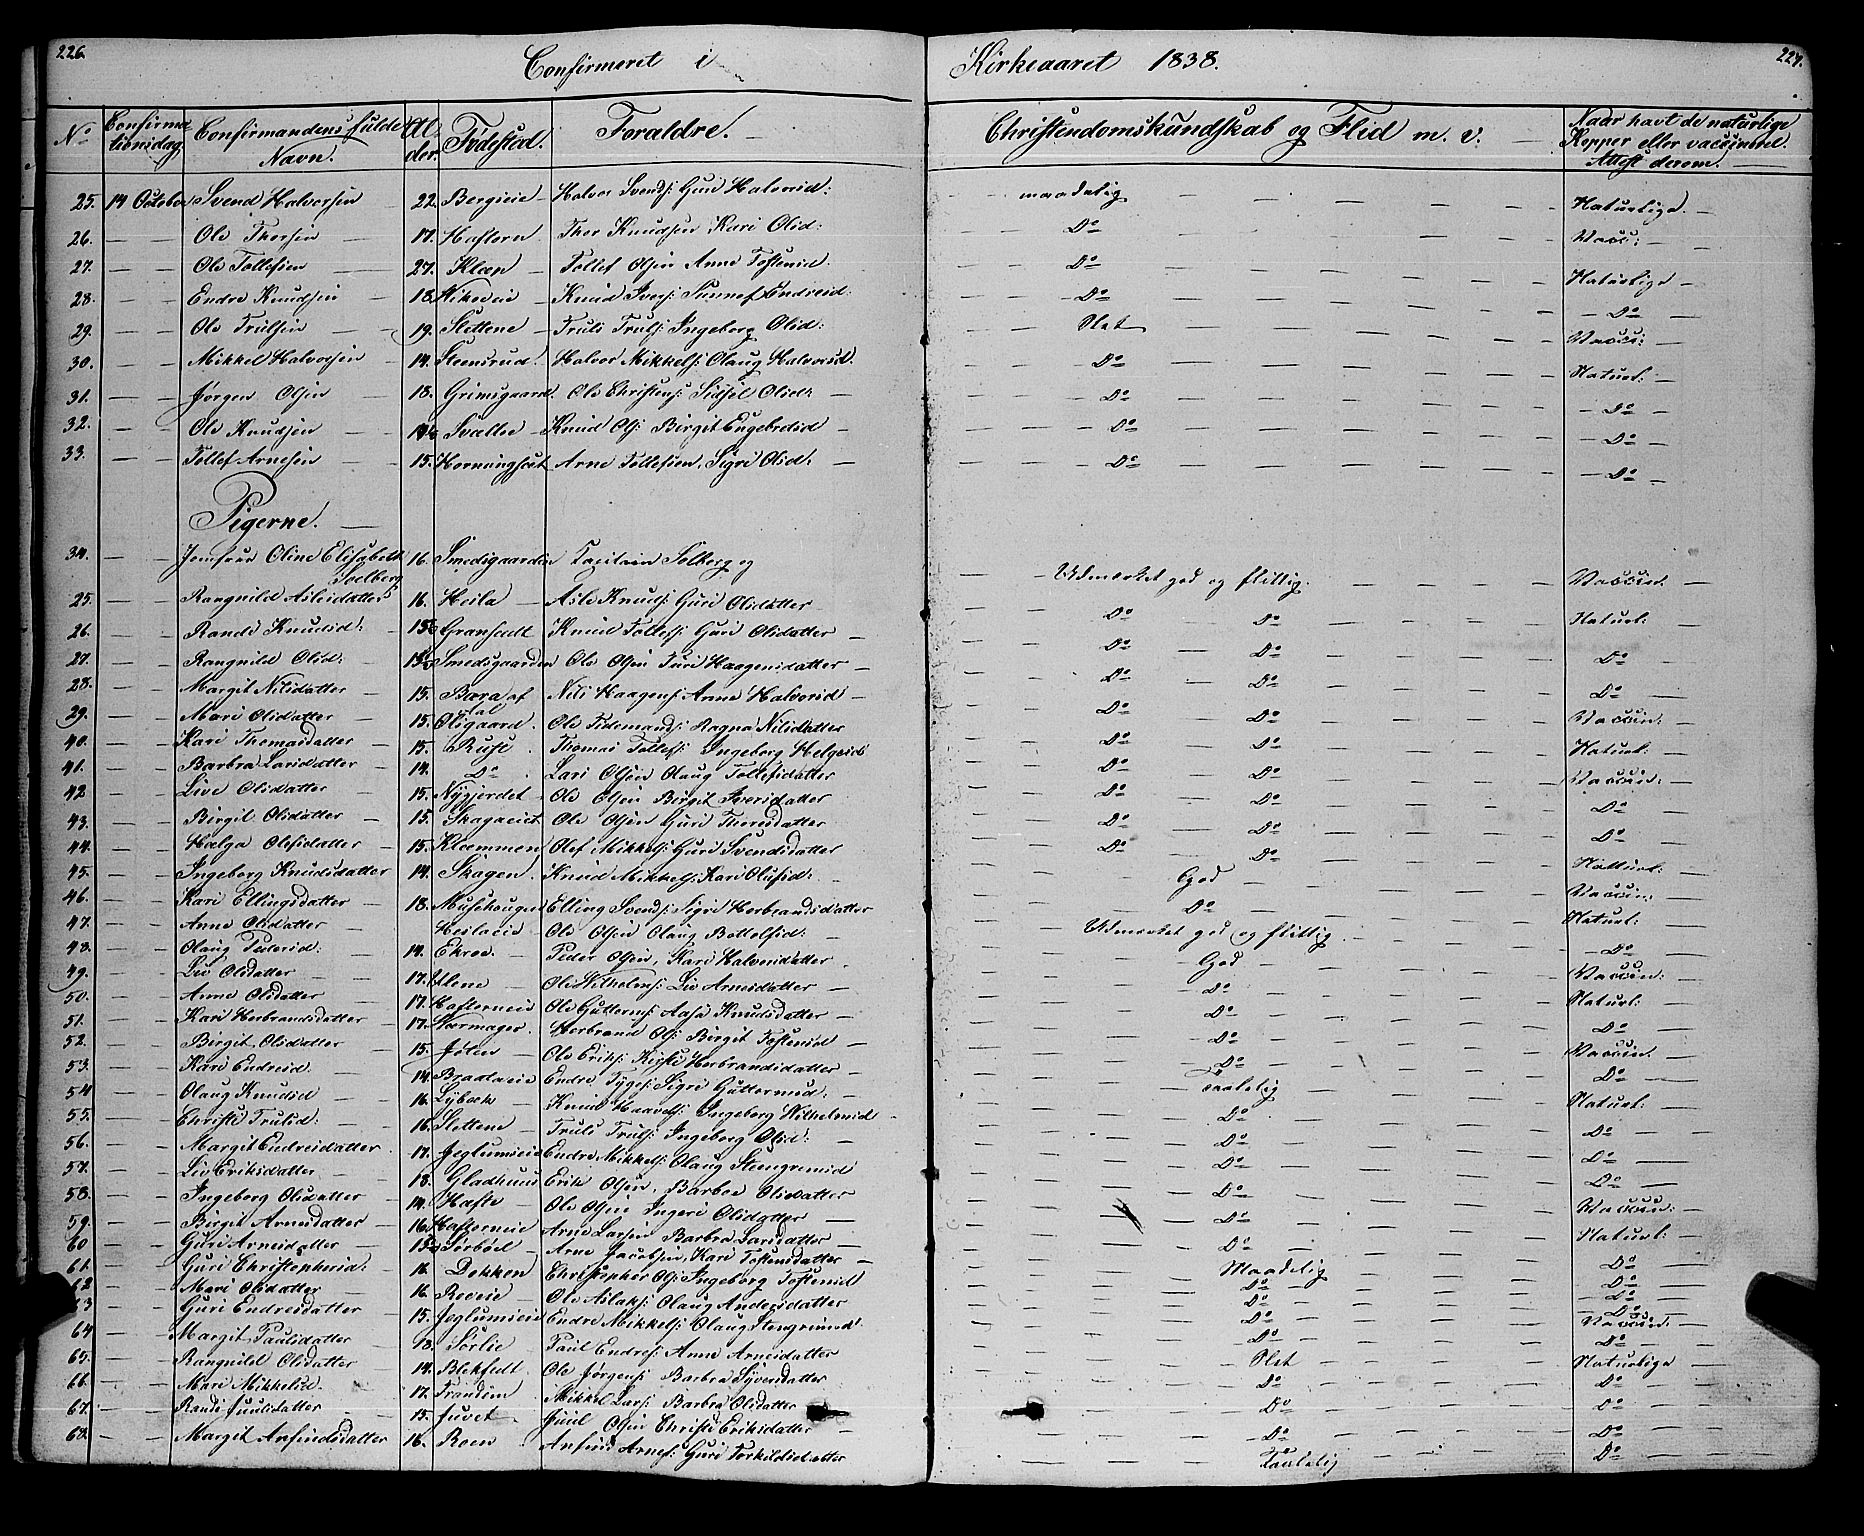 226.
Confirmeret i Kirkeaaret 1838.
227.
No Confirmationsdag. Confirmandens fulde Navn. Alder. Fødested. Foraldre. Christendomskundskab og Flid m. v. Naar havt de naturlige Kopper eller vaccineret Attest derom.
25. 14 October Svend Halvorsen 22. Bergieie Halvor Svends: Guri Halvorsd: maadelig Naturlige.
26. Ole Thorsen 17. Haftorn Thor Knudsen Kari Olsd: Do Vacc:
27. Ole Tollefsen 27. Kleen Tollef Olsen Anne Tostensd. Do Naturlige
28. Endre Knudsen 18. Knud Ivers: Sunnef Endresd: Do Do
29. Ole Trulsen 19. Slettene Truls Truls: Ingeborg Olsd: Slet Vacci:
30. Mikkel Halvorsen 14. Steensrud Halvor Mikkels: Olaug Halvorsd. Do Naturl:
31. Jørgen Olsen 18. Grimsgaard. Ole Christens: Sidsel Olsd: Do Do
32. Ole Knudsen Svallee Knud Ols: Birgit Engebretsd Do Do
33. Tollef Arnesen 15. Arne Tollefsen, Sigri Olsd: Do Do
Pigerne.
34. Jomfrue Oline Elisabeth Soelberg 16. Smedsgaarden Capitain Solberg og Udmerket god og flittig. Vaccin:
25. Rangnild Aslesdatter 16. Heila Asle Knuds: Guri Olsdatter Do Do Naturl:
26. Randi Knudsd: Knud Tollefs: Guri Olsdatter Do Do Do
27. Rangnild Olsd: Smedsgaarden Ole Olsen Turi Haagensdatter Do Do Do
28. Margit Nilsdatter 15. Nils Haagens: Anne Halvorsd Do Do Vaccin:
29. Mari Olsdatter 15. Olsgaard. Ole Tidemands: Ragna Nilsdatter Do Do Naturl:
40. Kari Thomasdatter 15. Ruse Thomas Tollefs: Ingeborg Helgesd Do Do Vaccin:
41. Barbra Larsdatter 14. Do Lars Olsen Olaug Tollefsdatter Do Do Do
42 Live Olsdatter 15. Nygjerdet Ole Olsen Birgit Iversdatter Do Do Do
43. Birgit Olsdatter 15. Skagaeiet Ole Olsen Guri Thoresdatter Do Do
44. Helga Olefsdatter 15. Klemmen Olef Mikkels: Guri Svendsdatter Do Do Natturl:
45. Ingeborg Knudsdatter 14. Skagen Knud Mikkels: Kari Olufsd: God Vaccin:
46. Kari Ellingsdatter 18. Elling Svends: Sigri Herbrandsdatter Do Naturl:
47. Anne Olsdatter Heilaeie Ole Olsen Olaug Bottolfsd: Udmerket god og flittig Do
48. Olaug Pedersd: 14. Ekroe. Peder Olsen, Kari Halvorsdatter God Vaccin:
49. Liv Olsdatter 17. Ole Wilhelms: Liv Arnesdatter Do Naturl:
50. Anne Olsdatter 17. Hafterneie Ole Guttorms: Aase Knudsdatter Do Do
51. Kari Herbrandsdatter 17. Nærmager. Herbrand Ols: Birgit Tostensd Do Vaccin.
52. Birgit Olsdatter 15. Joten Ole Eriks: Kirsti Herbrandsdatter Do Do
53. Kari Endresd. 14. Endre Tyges: Sigri Guttormsd: Taalelig Naturl:
54 Olaug Knudsd 16. Lybæk Knud Haavels: Ingeborg Wilhelmsd Do Do
55. Christi Trulsd: 16. Slettene Truls Truls: Ingeborg Olsd: Do Do
56. Margit Endresdatter 17. Jeglumseie Endre Mikkels: Olaug Steengrimsd Do Do
57. Liv Eriksdatter 18. Gladhuus Erik Olsen, Barbro Olsdatter Do Vaccin:
58. Ingeborg Olsdatter 14. Hafte Ole Olsen Ingeri Olsdatter Do Naturl:
59. Birgit Arnesdatter 16. Hafterneie Arne Larsen Barbra Larsdatter Do Do
60 Guri Arnesdatter Sørbøel Arne Jacobsen, Kari Tostensdatter Maadelig Do
61. Guri Christenhersd: 16 Dokken Christenher Ols: Ingeborg Tostensd Do Do
62 Mari Olsdatter 16. Roeeie Ole Aslaks: Olaug Andersdatter Do Do
63 Guri Endresdatter 15. Jeglumseie Endre Mikkels: Olaug Stengrimsd: Do Vaccin:
64 Margit Paulsdatter 18. Sørlie Paul Endres: Anne Arnesdatter Do Do
65. Rangnild Olsdatter 14. Ole Jørgens: Barbra Syversdatter Slet Naturlige
66. Mari Mikkelsd. 17. Trandum Mikkel Lars: Barbra Olsdatter Do Do
67. Randi Juulsdatter 15. Juvet Juul Olsen Christi Eriksdatter Do Do
68. Margit Anfindsdatter 16. Roen Anfind Arnes: Guri Torkildsdatter Do Do
Taalelig Do